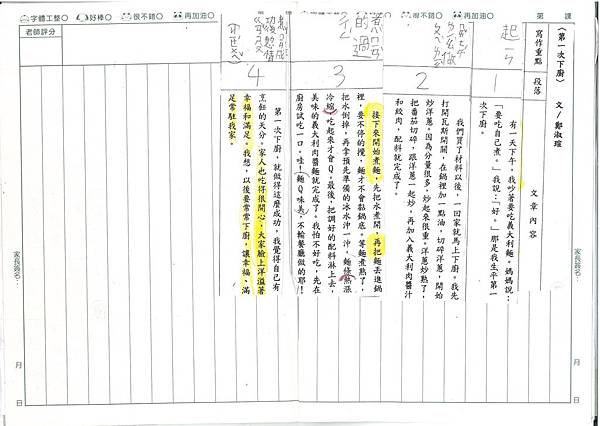 第　課
□再加油○
□很不錯○
□好棒○
□字體工整○
第　課
□再加油○
□很不錯○
□好棒○
□字體工整○
老師評分
〈第一次下廚〉　文／鄭淑瑄
寫作重點
段落
文章內容
1
有一天下午，我吵著要吃義大利麵。媽媽說：
「要吃自己煮。」我說：「好。」那是我生平第一
次下廚。
2
我們買了材料以後，一回家就馬上下廚。我先
打開瓦斯開關，在鍋裡加一點油，切碎洋蔥，開始
炒洋蔥。因為分量很多，炒起來很重。洋蔥炒熟了，
把番茄切碎，跟洋蔥一起炒。再加入義大利肉醬汁
和絞肉，配料就完成了。
煮麵
的過
3
接下來開始煮麵，先把水煮開，再把麵丟進鍋
裡，要不停的攪，麵才不會黏鍋底。等麵煮熟了，
把水倒掉，再拿預先準備的冰水沖一沖，麵條熱漲
冷縮，吃起來才會Q。最後，把調好的配料淋上去，
美味的義大利肉醬麵就完成了。我怕不好吃，先在
廚房試吃一口。哇！麵Q味美，不輸餐廳做的耶！
4
第一次下廚，就做得這麼成功，我覺得自己有
烹飪的天分。家人也吃得很開心，大家臉上洋溢著
幸福和滿足。我想，以後要常常下廚，讓幸福、滿
足常駐我家。
家長簽名：
月
日
家長簽名：
月
日